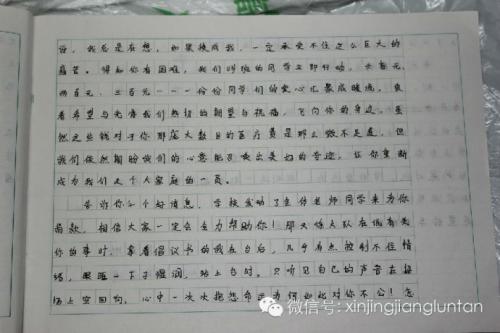 份，我总是在想，如果换成我，一定承受不住这么巨大的
痛苦。得知你有困难，我们班的同学立即行动，一百元、
两百元、三百元……份份同学们的爱心汇聚成暖流，负
着希望与充满我们热切的期望与祝福，飞向你的身边。虽
然这些钱对于你那庞大数目的医疗费是那么微不足道，但
我们依然期盼我们的心意能够
让你重新
成为我们这个大家庭的一员。
告诉你一个好消息，学校发动了全体老师同学来为你
捐款，相信大家一定会全力帮助你！那天
你的事时，拿着倡议书的我在台后，几乎有点控制不住情
绪，眼眶一下子湿润，站上台时，只听见自己的声音在操
场上空回响，心中一次次抱怨命运为何如此对你不公！怎
微信号：xinjingjiangluntan